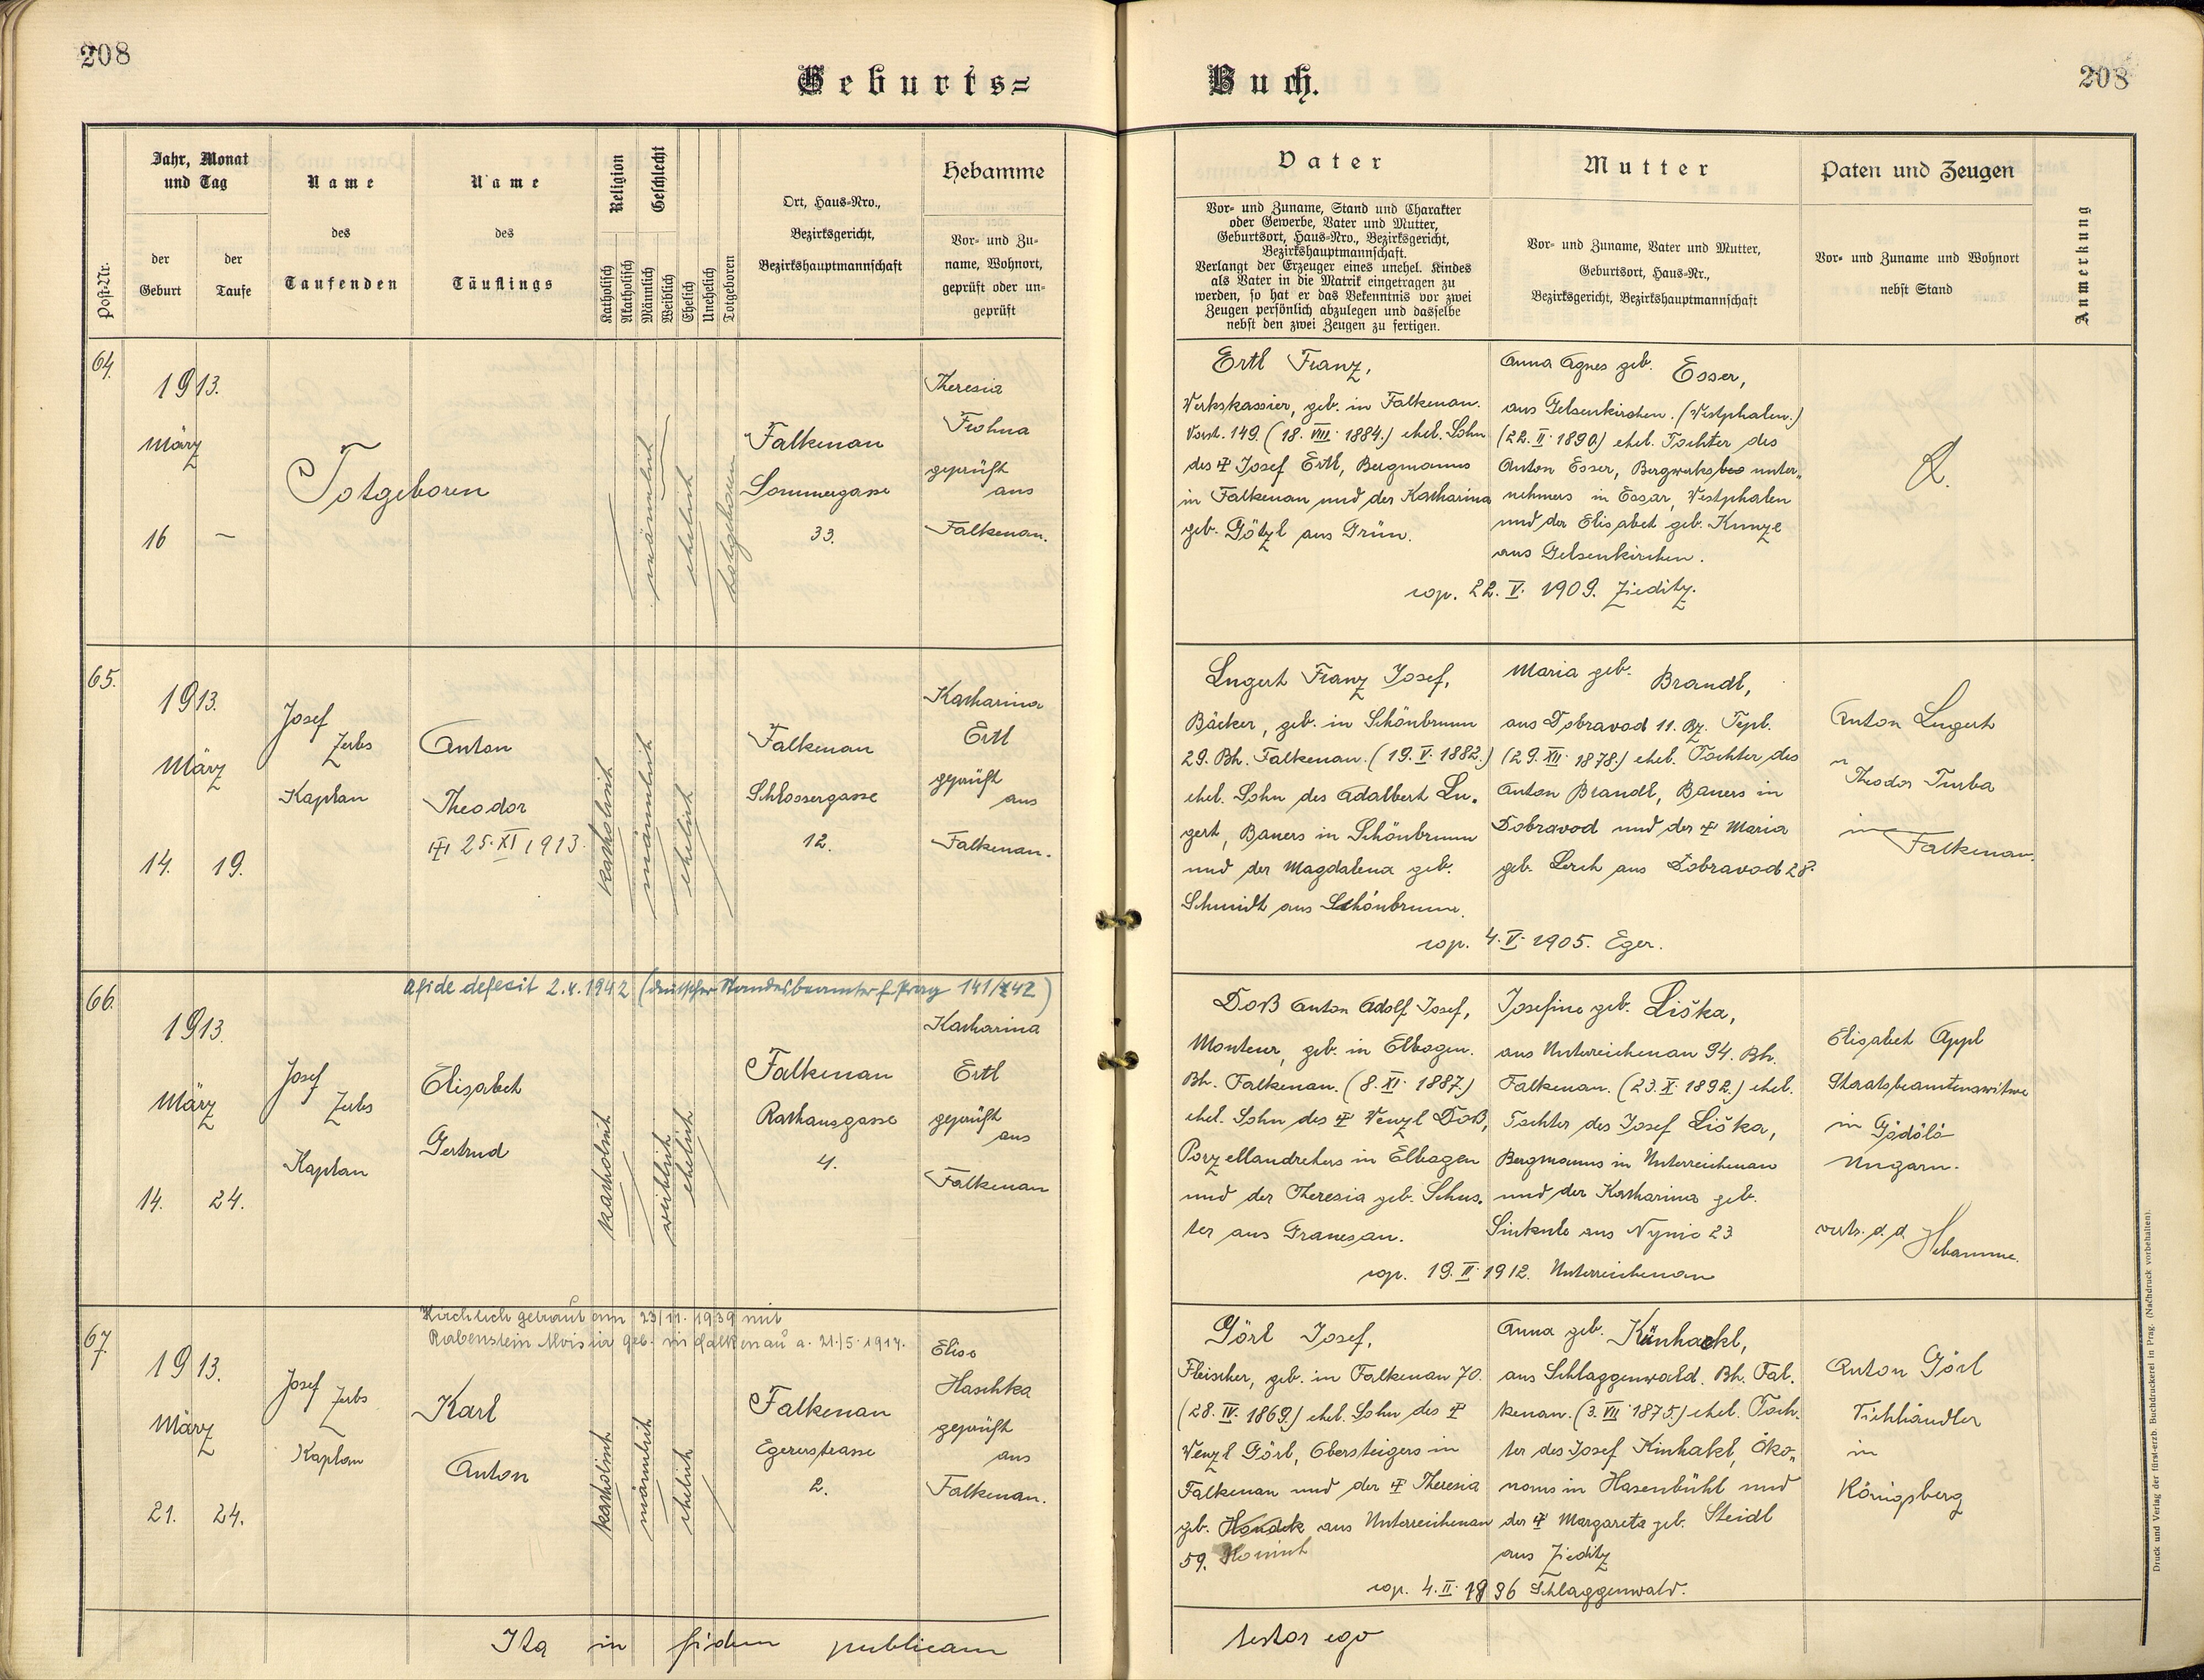 208
Geburts=
Buch.
208
Post-Nr.
Jahr, Monat
und Tag
der
Geburt
der
Taufe
Name
des
Taufenden
Name
des
Täuflings
Religion
Katholisch
Akatholisch
Geschlecht
Männlich
Weiblich
Ehelich
Unehelich
Totgeboren
Ort, Haus-Nro.,
Bezirksgericht,
Bezirkshauptmannschaft
Hebamme
Vor- und Zu-
name, Wohnort,
geprüft oder un-
geprüft
Vater
Vor- und Zuname, Stand und Charakter
oder Gewerbe, Vater und Mutter,
Geburtsort, Haus-Nro., Bezirksgericht,
Bezirkshauptmannschaft.
Verlangt der Erzeuger eines unehel. Kindes
als Vater in die Matrik eingetragen zu
werden, so hat er das Bekenntnis vor zwei
Zeugen persönlich abzulegen und dasselbe
nebst den zwei Zeugen zu fertigen.
Mutter
Vor- und Zuname, Vater und Mutter,
Geburtsort, Haus-Nr.,
Bezirksgericht, Bezirkshauptmannschaft
Paten und Zeugen
Vor- und Zuname und Wohnort
nebst Stand
Anmerkung
64.
1913.
März
16 –
Totgeboren
männlich
ehelich
totgeboren
Falkenau
Sommergasse
33.
Theresia
Frohna
geprüft
aus
Falkenau.
Ertl Franz,
Werkskassier, geb. in Falkenau.
Vorst. 149. (18. VIII. 1884.) ehel. Sohn
des ✝ Josef Ertl, Bergmanns
in Falkenau und der Katharina
geb. Götzl aus Grün.
Anna Agnes geb. Esser,
aus Gelsenkirchen. (Westphalen.)
(22. II. 1890) ehel. Tochter des
Anton Esser, Bergwerksbes unter„
nehmers in Essar, Westphalen
und der Elisabet geb. Kunze
aus Gelsenkirchen.
cop. 22. V. 1909. Zieditz.
65.
1913.
März
14. 19.
Josef
Zerbs
Kaplan
Anton
Theodor
✝ 25. XI 1913
katholisch
männlich
ehelich
Falkenau
Schlossergasse
12.
Katharina
Ertl
geprüft
aus
Falkenau.
Lugert Franz Josef,
Bäcker, geb. in Schönbrunn
29. Bh. Falkenau. (19. V. 1882.)
ehel. Sohn des Adalbert Lu-
gert, Bauers in Schönbrunn
und der Magdalena geb.
Schmidt aus Schönbrunn.
Maria geb. Brandl,
aus Dobravod 11. Bz. Tepl.
(29. XII. 1878.) ehel. Tochter des
Anton Brandl, Bauers in
Dobravod und der ✝ Maria
geb. Lerch aus Dobravod 28.
cop. 4. V. 1905. Eger.
Anton Lugert
Theodor Turba
in
Falkenau.
66.
a fide defecit 2.4.1942 (deutscher Standesbeamter f. Prag 141/42)
1913.
März
14. 24.
Josef
Zerbs
Kaplan
Elisabet
Gertrud
katholisch
weiblich
ehelich
Falkenau
Rathausgasse
4.
Katharina
Ertl
geprüft
aus
Falkenau
Doß Anton Adolf Josef,
Monteur, geb. in Elbogen.
Bh. Falkenau. (8. XI. 1887.)
ehel. Sohn des ✝ Wenzl Doß,
Porzellandrehers in Elbogen
und der Theresia geb. Schus-
ter aus Granesau.
Josefine geb. Liška,
aus Unterreichenau 94. Bh.
Falkenau. (23. X. 1892.) ehel.
Tochter des Josef Liška,
Bergmanns in Unterreichenau
und der Katharina geb.
Sinkule aus Nynic 23
cop. 19. II. 1912. Unterreichenau
Elisabet Appl
Staatsbeamtenswitwe
in Gödölö
Ungarn.
vertr. d. d. Hebamme.
67.
Kirchlich getraut am 23/11. 1939 mit
Rabenstein Aloisia geb. in Falkenau a. 21./5. 1917.
1913.
März
21. 24.
Josef
Zerbs
Kaplan
Karl
Anton
katholisch
männlich
ehelich
Falkenau
Egererstrasse
2.
Elise
Haschka
geprüft
aus
Falkenau.
Görl Josef,
Fleischer, geb. in Falkenau 70.
(28. IV. 1869.) ehel. Sohn des ✝
Wenzl Görl, Obersteigers in
Falkenau und der ✝ Theresia
geb. aus Unterreichenau
59.
Anna geb. Künhackl,
aus Schlaggenwald. Bh. Fal-
kenau. (3. VII. 1875.) ehel. Toch-
ter des Josef Kinhakl, Öko„
noms in Hasenbühl und
der ✝ Margareta geb. Steidl
aus Zieditz
cop. 4. II. 1896 Schlaggenwald.
Anton Görl
Viehhändler
in
Königsberg
Ita in fidem publicam
testor ego
Druck und Verlag der fürst-erzb. Buchdruckerei in Prag. (Nachdruck vorbehalten).